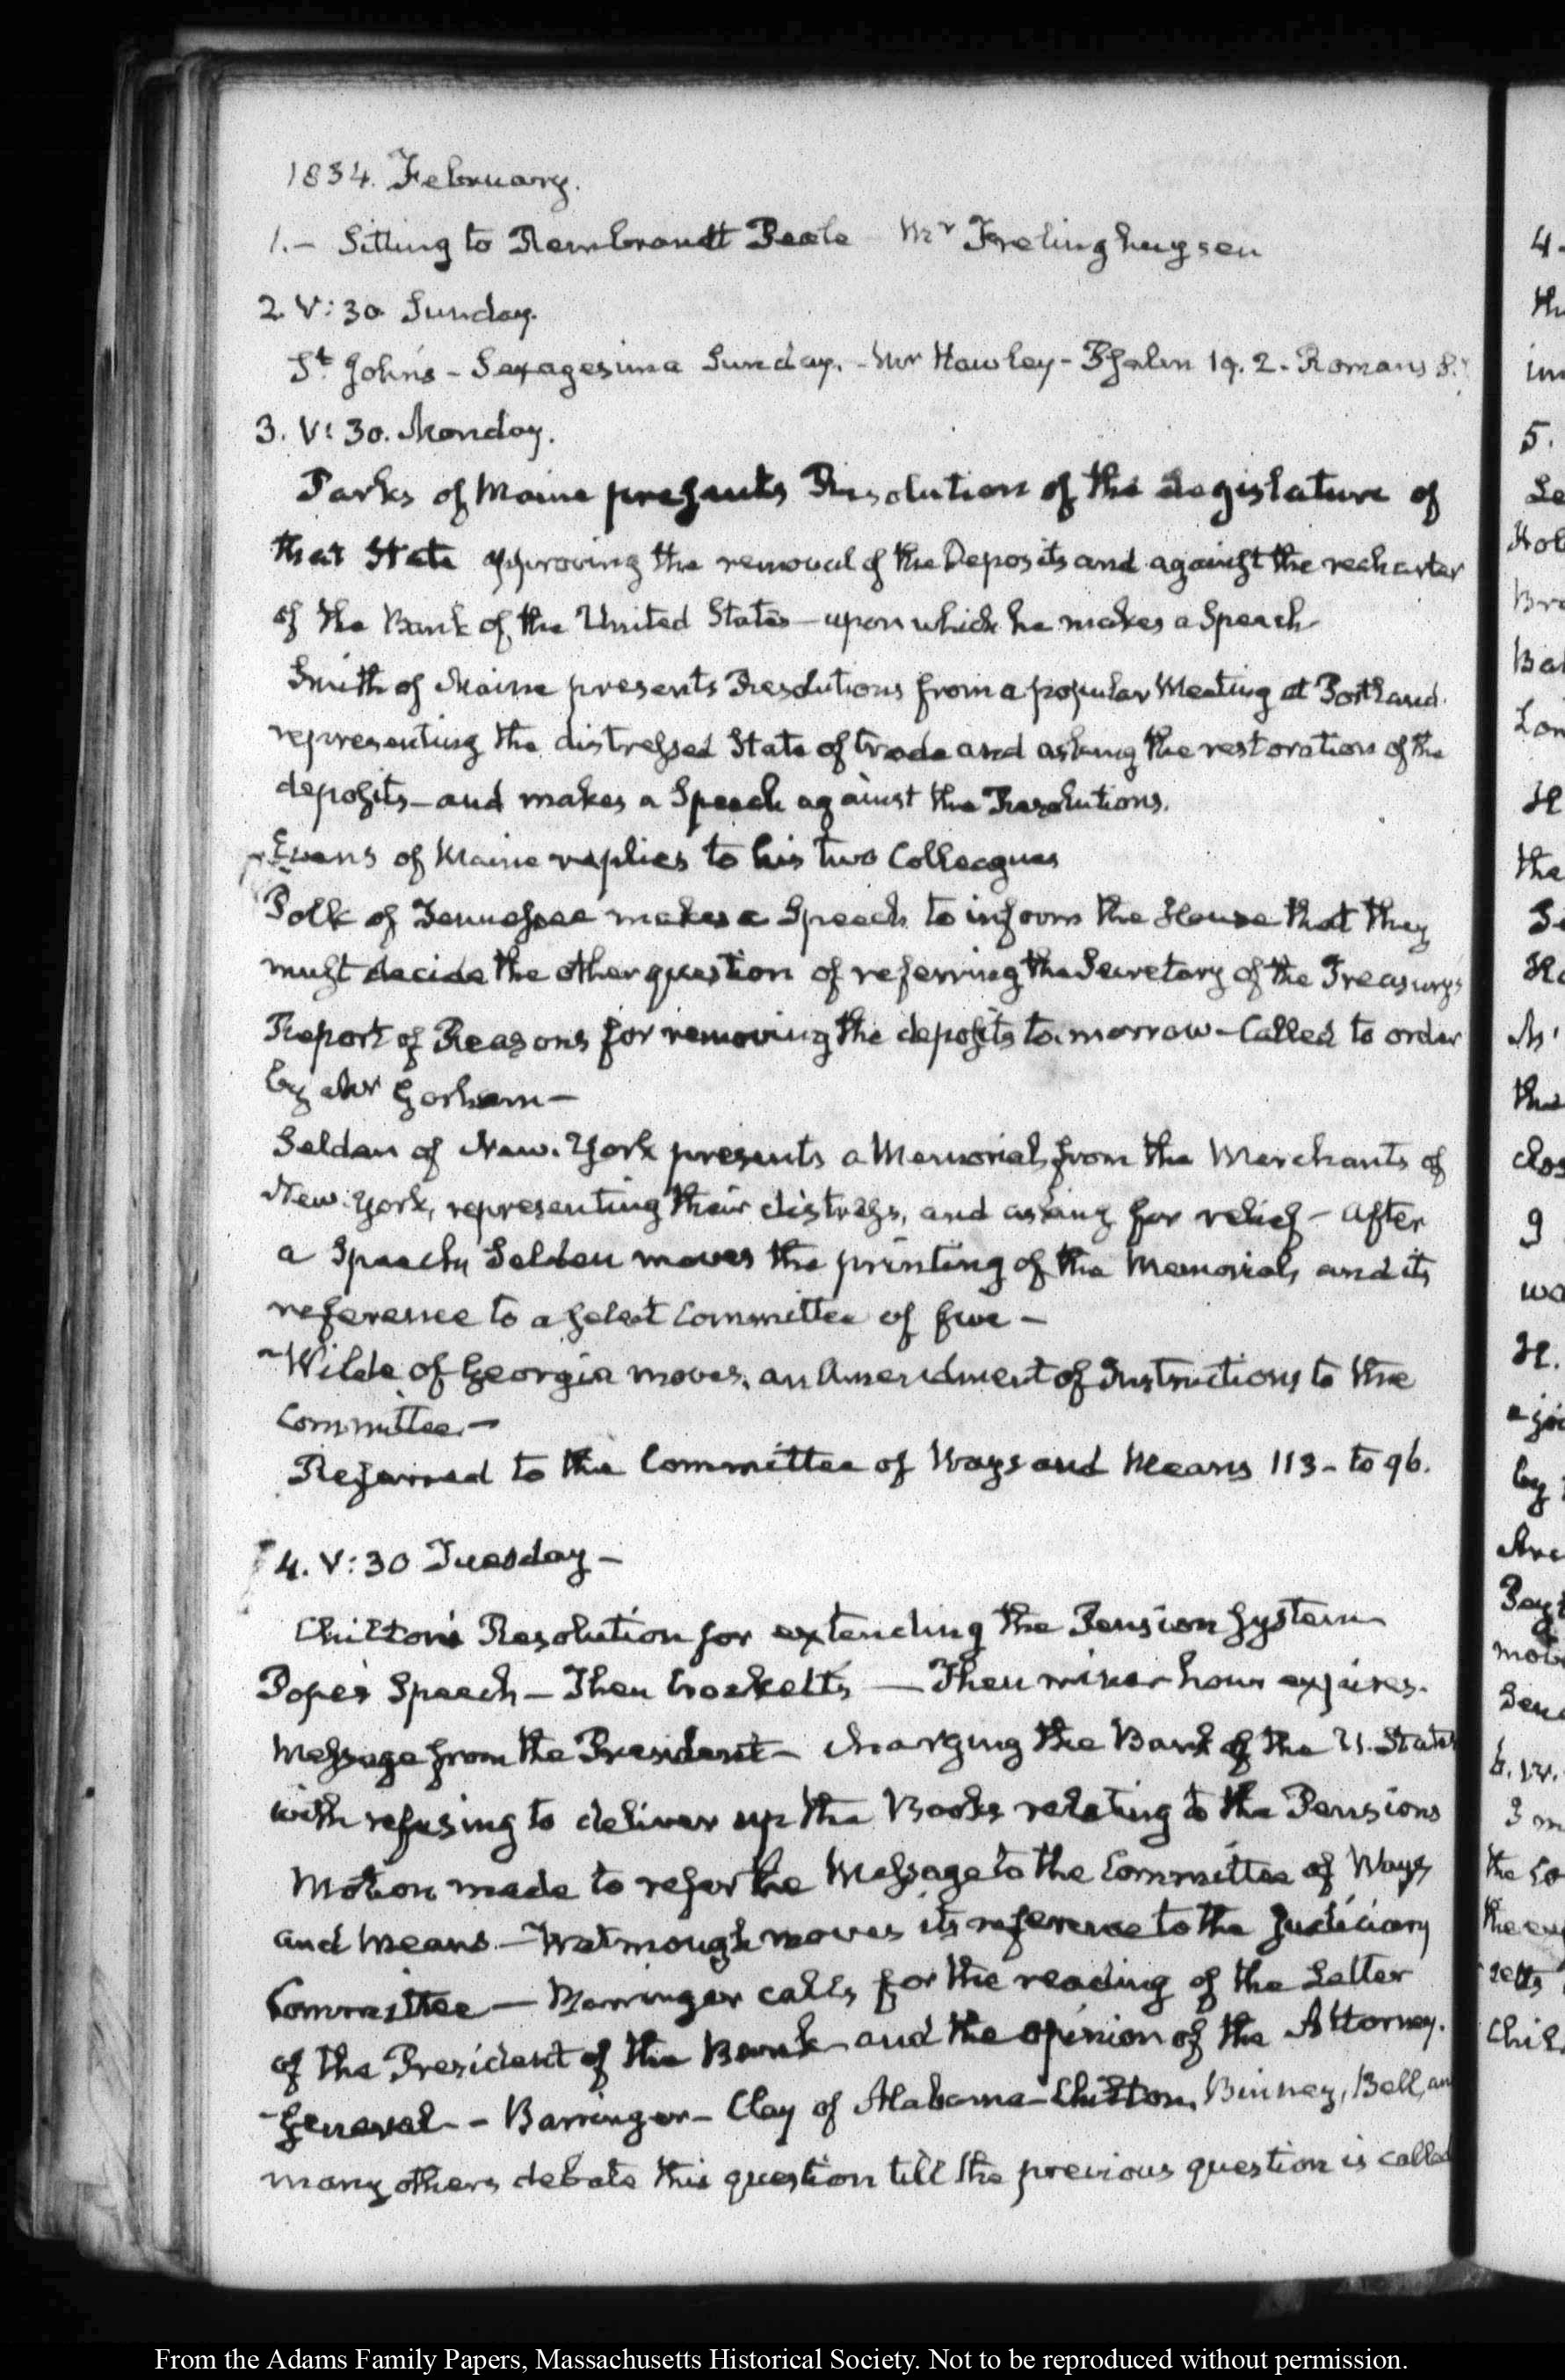 1834. February.
1.- Sitting to Rembrandt Peale Mr Frelinghuysen
2. V:30 Sunday.
St. John's - Sexagesima Sunday. - Mr Hawley - Psalm 19. 2. - Romans 8.
3. V:30. Monday.
Parks of Maine presents Resolution of the Legislature of
that State approving the removal of the Deposits and against the recharter
of the Bank of the United States - upon which he makes a Speech
Smith of Maine presents Resolutions from a popular Meeting at Portland
representing the distressed State of trade and asking the restoration of the
deposits - and makes a Speech against the Resolutions.
Evans of Maine replies to his two Colleagues
Polk of Tennessee makes a Speech to inform the House that they
must decide the other question of referring the Secretary of the Treasury's
Report of Reasons for removing the deposits to-morrow - Called to order
by Mr Gorham -
Selden of New-York presents a Memorial from the Merchants of
New York, representing their distress, and asking for relief - After
a Speech Selden moves the printing of the Memorial, and its
reference to a select Committee of five -
Wilde of Georgia moves, an Amendment of Instructions to the
Committee -
Referred to the Committee of Ways and Means 113 - to 96.
4. V:30 Tuesday -
Chilton's Resolution for extending the Pension System
Pope's Speech - Then Crockett's - Then hour expires.
Message from the President - charging the Bank of the U. States
with refusing to deliver up the Books relating to the Pensions
Motion made to refer the Message to the Committee of Ways
and Means - Watmough moves its reference to the Judiciary
Committee - Barringer calls for the reading of the Letter
of the President of the Bank and the opinion of the Attorney-
General - Barringer - Clay of Alabama - Chilton, Binney, Bell, and
many others debate this question till the previous question is called
4.
5.
the
9
H.
by
From the Adams Family Papers, Massachusetts Historical Society. Not to be reproduced without permission.